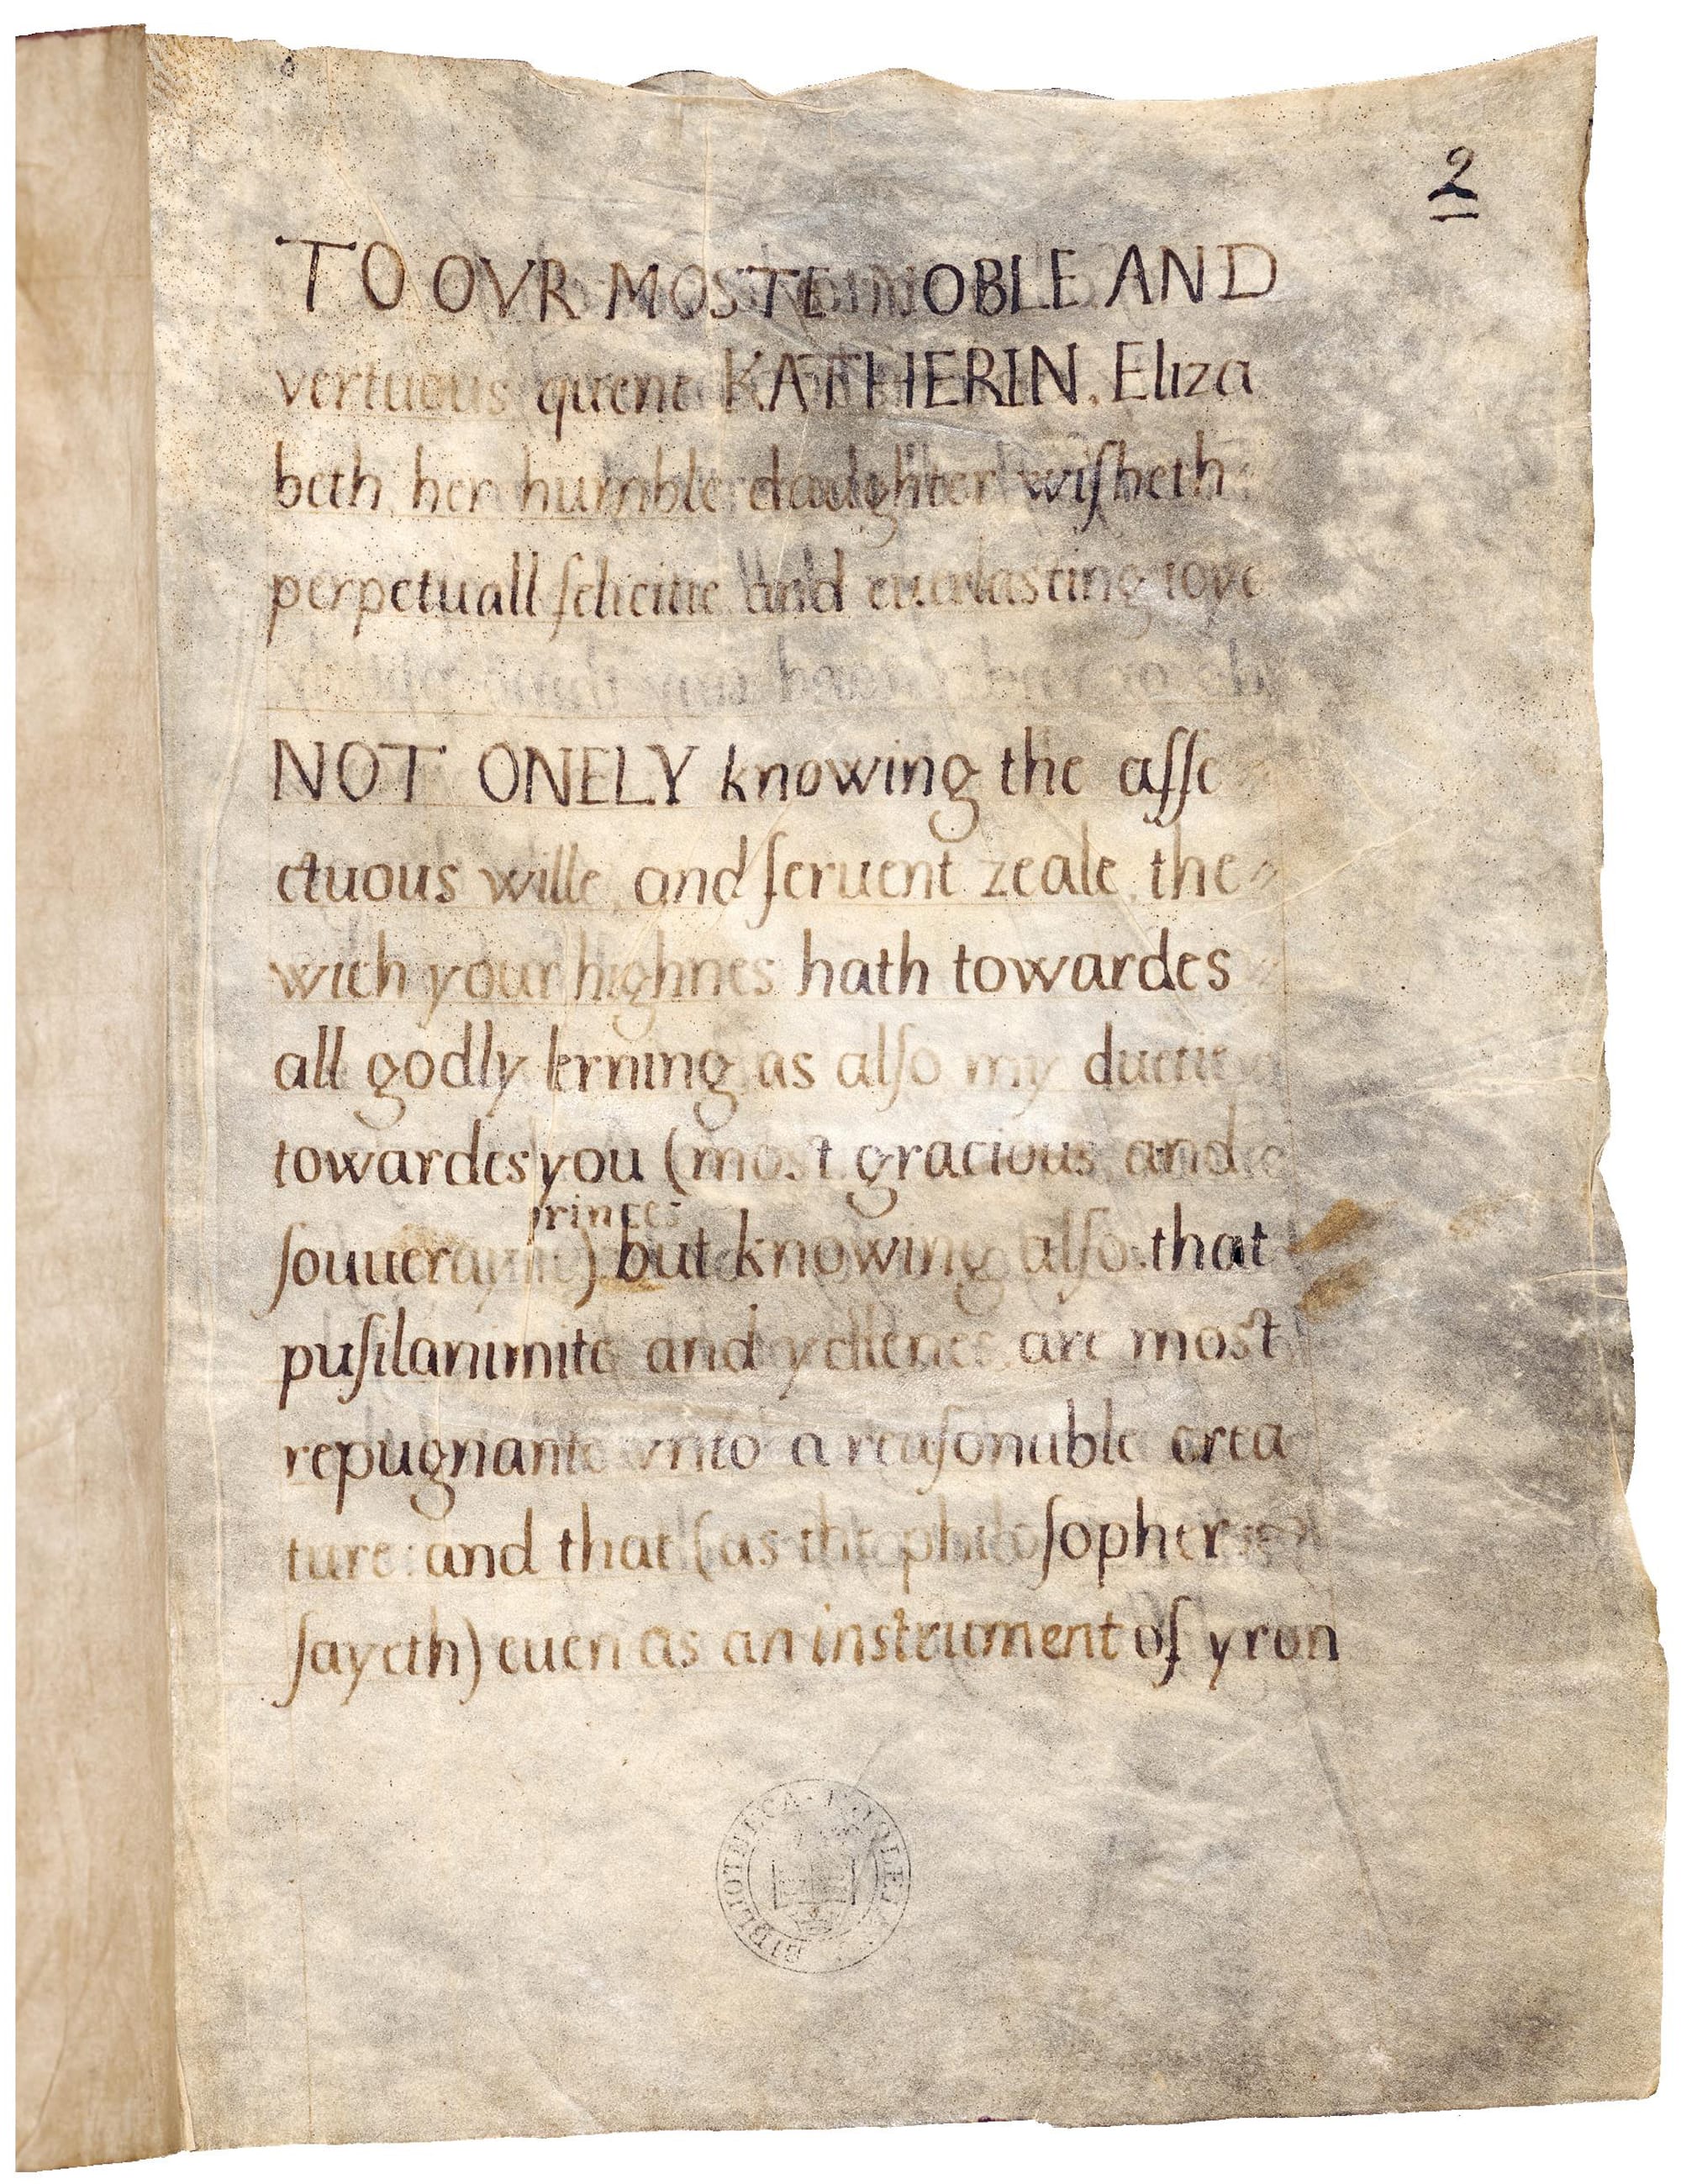 2
TO OVR MOSTE NOBLE AND
vertuous quene KATHERIN, Eliza
beth her humble daughter wiſheth
perpetuall felicitie and euerlasting ioye
NOT ONELY knowing the affe
ctuous wille, and feruent zeale, the
wich your highnes hath towardes
all godly lerning as alſo my duetie
towardes you (most gracious and
princes
ſouuerayne) but knowing alſo that
puſilanimite and ydlenes are most
repugnante vnto a reaſonable crea
ture: and that (as the philoſopher
ſayeth) euen as an instrument of yron
BIBLIOTHECA